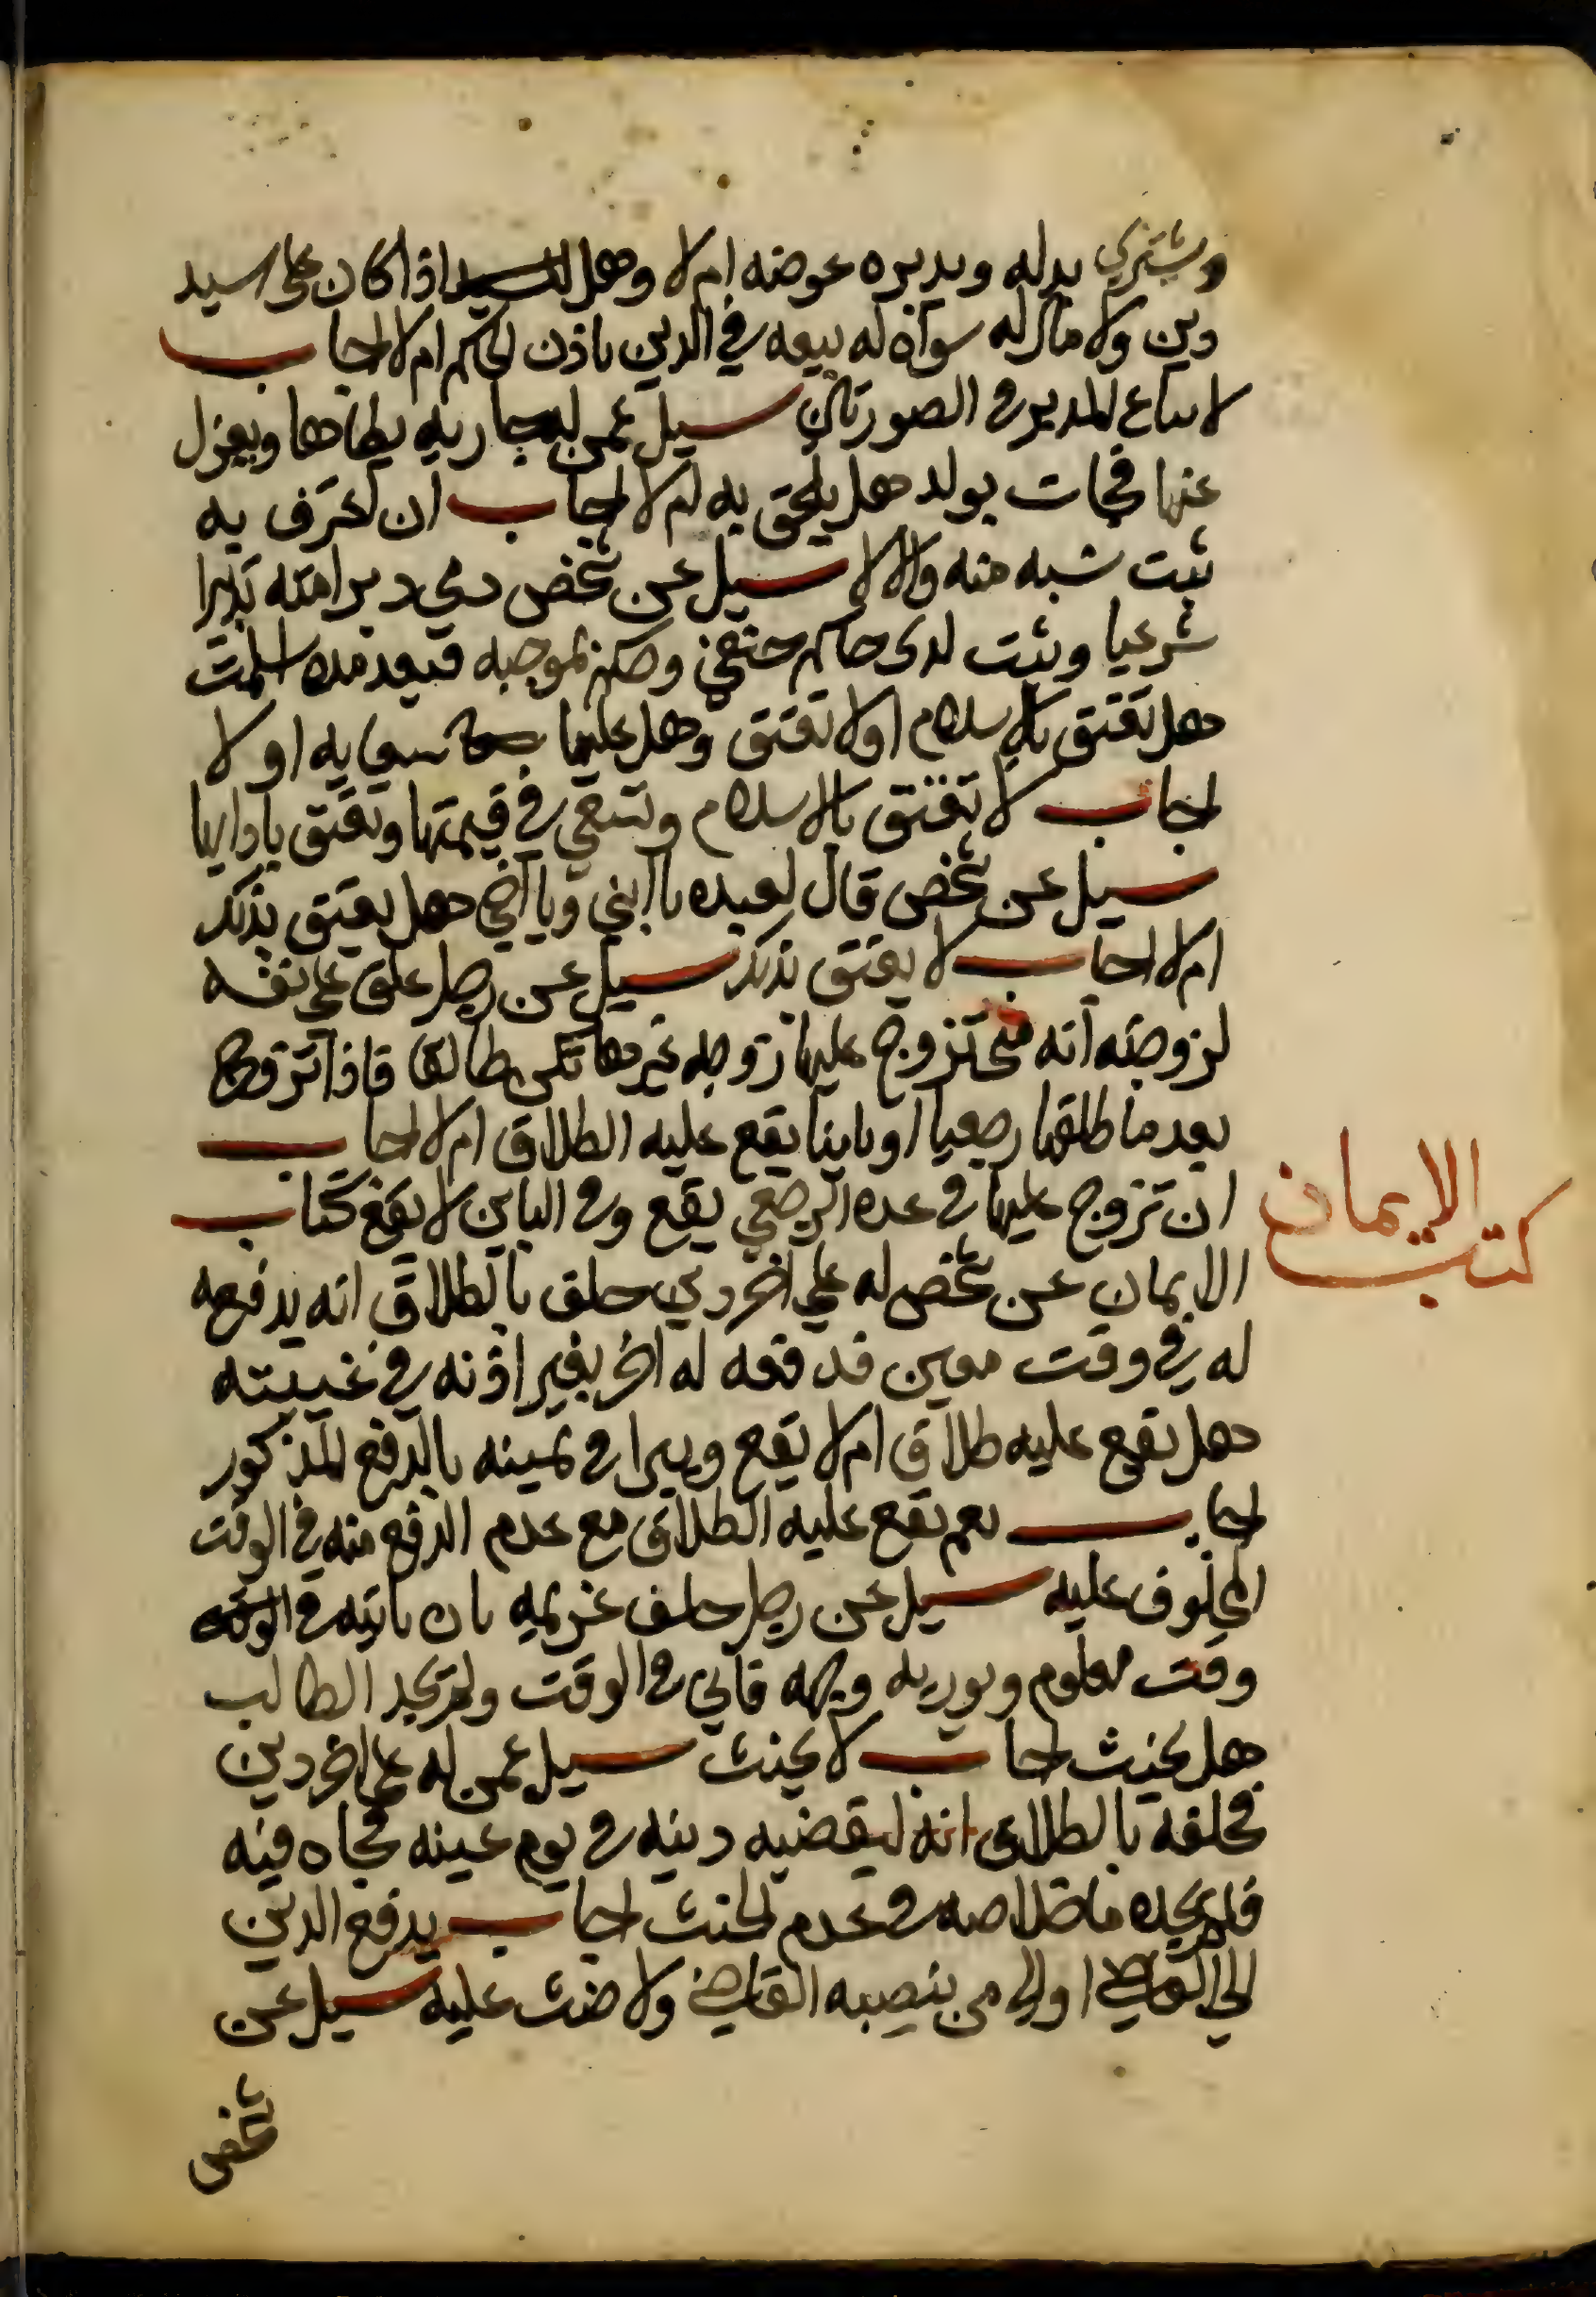 ويشتري بدله ويدبره عوضه ام لا وهل للسيد اذا كان على السيد
دين ولا مال له سواه له بيعه في الدين باذن الحاكم ام لا اجاب
لا يباع المدبر في الصورتين سيل عمن له جاريه يطاها ويعزل
عنها فجات بولد هل يلحق به ام لا اجاب ان اعترف به
ثبت نسبه منه والا لا سيل عن شخص ذمي دبر امته تدبيرا
شرعيا وثبت لدى حاكم حنفي وحكم بموجبه فبعد مده اسلمت
هل تعتق بالاسلام او لا تعتق وهل عليها سعايه او لا
اجاب لا تعتق بالاسلام وتسعى في قيمتها وتعتق بادايها
سيل عن شخص قال لعبده يا ابني ويا اخي هل يعتق بذلك
ام لا اجاب لا يعتق بذلك سيل عن رجل علق على نفسه
لزوجته انه متى تزوج عليها زوجه غيرها تكن طالقا فاذا تزوج
بعد ما طلقها رجعيا او باينا يقع عليه الطلاق ام لا اجاب
ان تزوج عليها في عدة الرجعي يقع وفي الباين لا يقع كتاب
الايمان عن شخص له على اخر دين حلف بالطلاق انه يدفعه
له في وقت معين فدفعه له اخر بغير اذنه في غيبته
هل يقع عليه طلاق ام لا يقع ويبرا في يمينه بالدفع المذكور
اجاب نعم يقع عليه الطلاق مع عدم الدفع منه في الوقت
المحلوف عليه سيل عن رجل حلف غريمه بان ياتيه في
وقت معلوم ويوريه وجهه فاتى في الوقت ولم يجد الطالب
هل يحنث اجاب لا يحنث سيل عمن له على اخر دين
فحلفه بالطلاق انه ليقضيه دينه في يوم عينه فجاه فيه
فلم يجده ما خلاصه في عدم الحنث اجاب يدفع الدين
الى القاضي او الى من ينصبه القاضي ولا حنث عليه سيل عن
شخص
كتاب الايمان